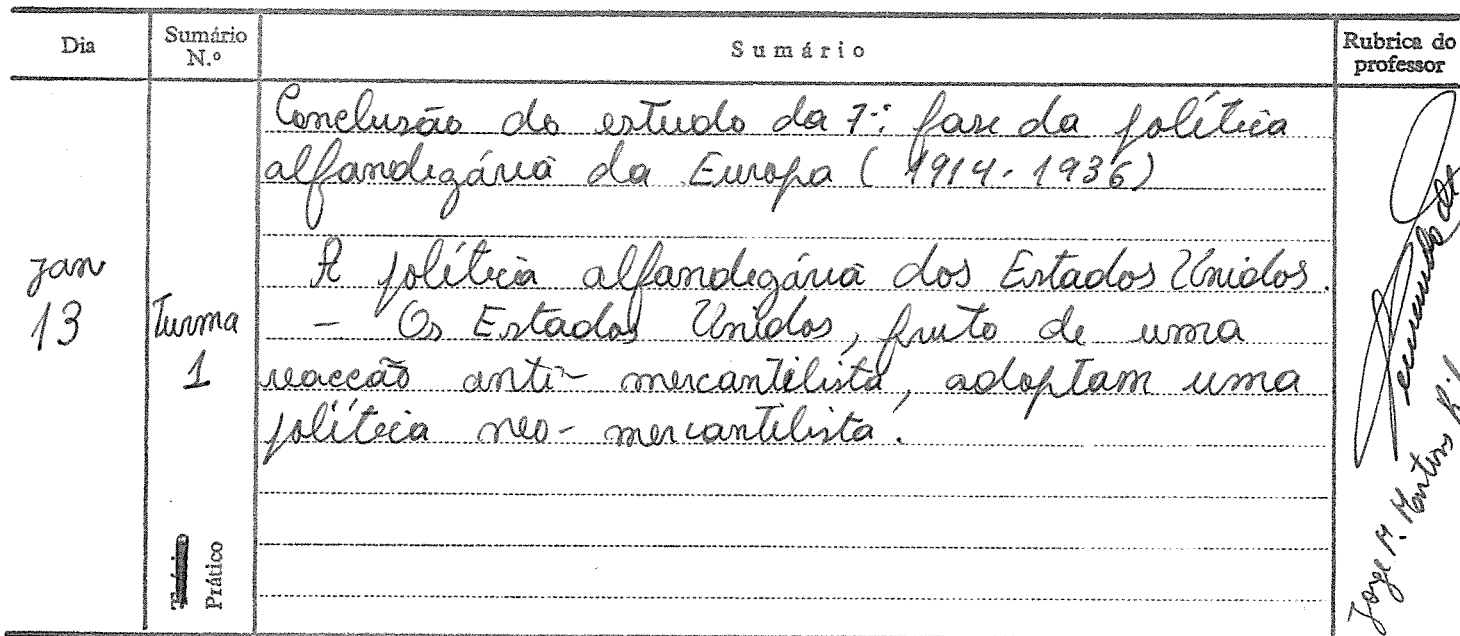 Dia
Sumário N.º
Sumário
Rubrica do professor
Jan 13
Turma 1
Prático
Conclusão do estudo da 7.ª fase da política
alfandegária da Europa (1914-1936)
A política alfandegária dos Estados Unidos.
- Os Estados Unidos, fruto de uma
reacção anti-mercantilista, adoptam uma
política neo-mercantilista.
Jorge M. Martins